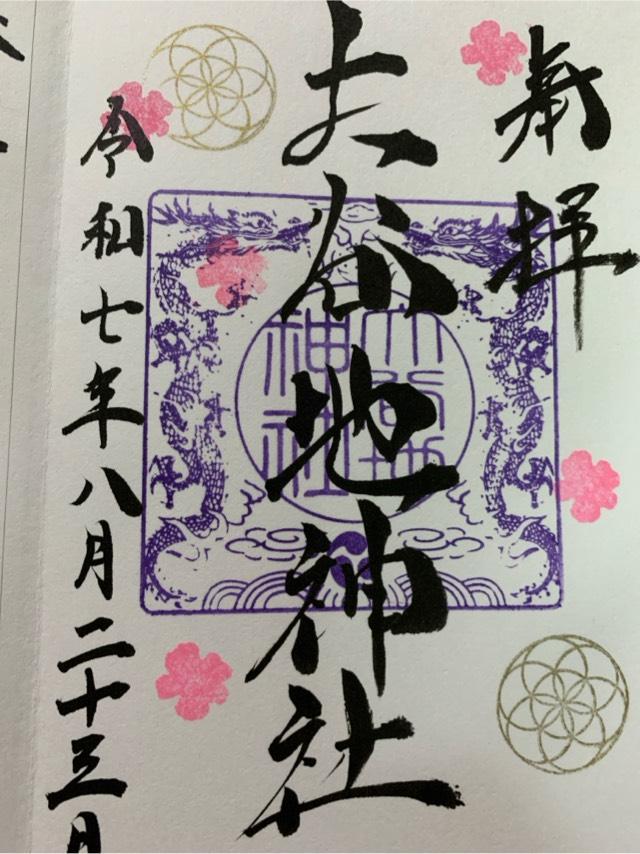 奉拝
大谷地神社
大谷地神社
令和七年八月二十三日